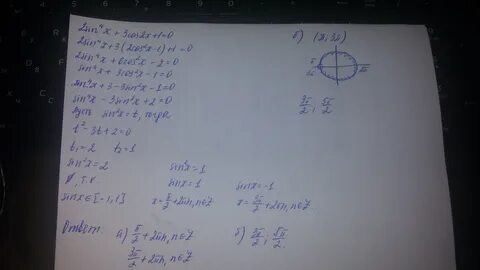 2sin⁴x + 3cos2x + 1 = 0
2sin⁴x + 3(2cos²x - 1) + 1 = 0
2sin⁴x + 6cos²x - 2 = 0
sin⁴x + 3cos²x - 1 = 0
sin⁴x + 3 - 3sin²x - 1 = 0
sin⁴x - 3sin²x + 2 = 0
Пусть sin²x = t, тогда
t² - 3t + 2 = 0
t₁ = 2 t₂ = 1
sin²x = 2 sin²x = 1
∅, т.к. sinx = 1 sinx = -1
sinx ∈ [-1; 1] x = π/2 + 2πn, n ∈ Z x = 3π/2 + 2πn, n ∈ Z
Ответ: а) π/2 + 2πn, n ∈ Z б) 3π/2; 5π/2
3π/2 + 2πn, n ∈ Z
б) [π; 3π]
π
3π
2π
3π/2; 5π/2